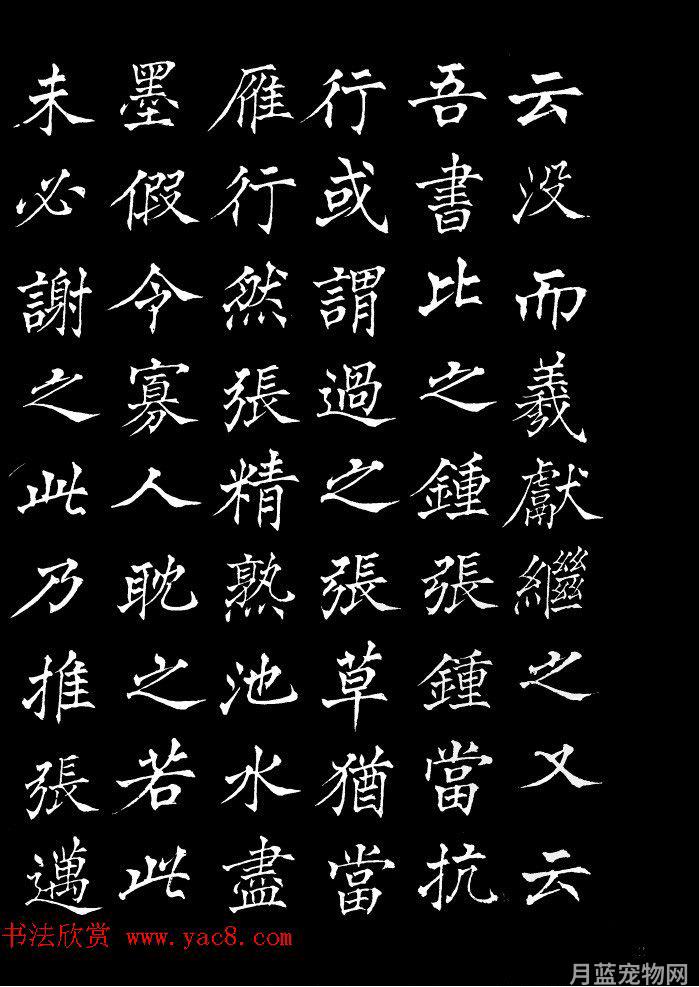 云没而羲獻繼之又云
吾書比之鍾張鍾當抗
行或謂過之張草猶當
雁行然張精熟池水盡
墨假令寡人耽之若此
未必謝之此乃推張邁
书法欣赏 www.yac8.com
月蓝宠物网